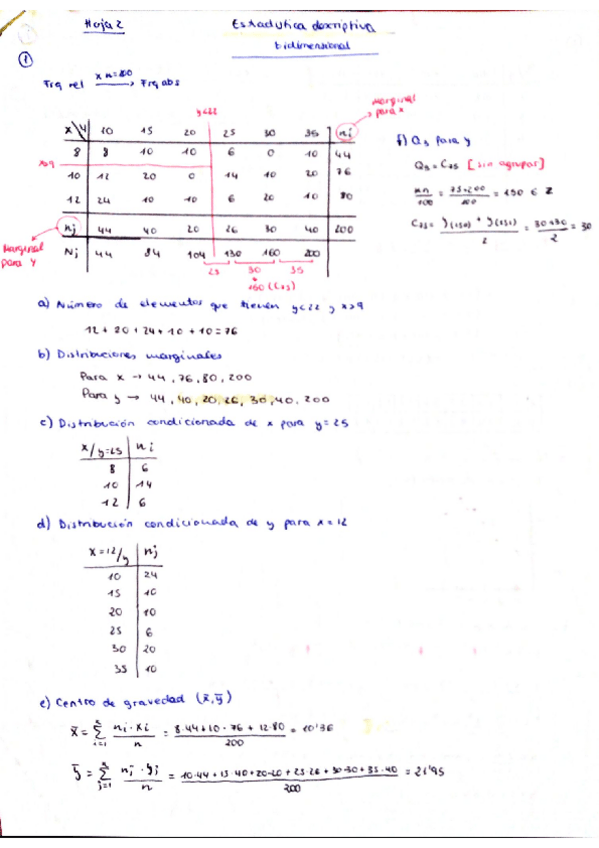 Hoja 2 Estadística descriptiva
bidimensional
①
Frq rel x n=200 → Frq abs
y<22
Marginal para x
X \ Y 10 15 20 25 30 35 ni
8 8 10 10 6 0 10 44
x>9
10 12 20 0 14 10 20 76
12 24 10 10 6 20 10 80
nj 44 40 20 26 30 40 200
Marginal para Y
Nj 44 84 104 130 160 200
25 30 35
160 (C75)
f) Q3 para y
Q3 = C75 [sin agrupar]
kn/100 = 75·200/100 = 150 ∈ Z
C75 = (y(150) + y(151))/2 = (30+30)/2 = 30
a) Número de elementos que tienen y<22 y x>9
12 + 20 + 24 + 10 + 10 = 76
b) Distribuciones marginales
Para x → 44, 76, 80, 200
Para y → 44, 40, 20, 26, 30, 40, 200
c) Distribución condicionada de x para y=25
x/y=25 ni
8 6
10 14
12 6
d) Distribución condicionada de y para x=12
x=12/y nj
10 24
15 10
20 10
25 6
30 20
35 10
e) Centro de gravedad (x̄, ȳ)
x̄ = Σ i=1 ni·xi/n = (8·44+10·76+12·80)/200 = 10'36
ȳ = Σ j=1 nj·yj/n = (10·44+15·40+20·20+25·26+30·30+35·40)/200 = 21'95